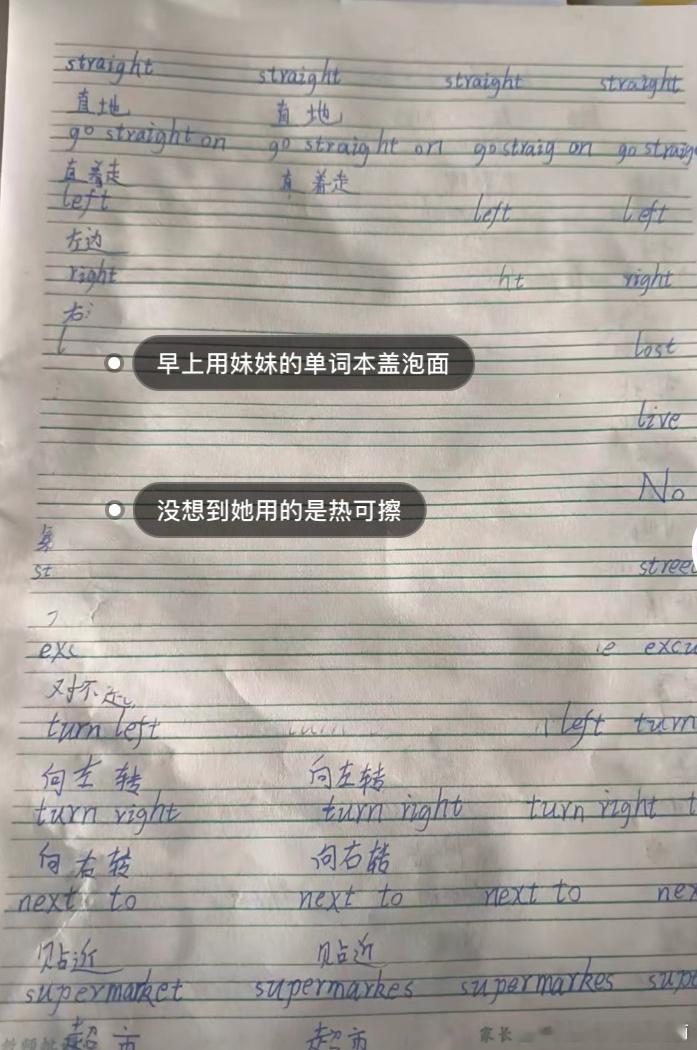 straight straight straight straight
直地 直地
go straight on go straight on go straig on go straig
直着走 直着走
left left left
左边
right ht right
右
l lost
早上用妹妹的单词本盖泡面
live
No
没想到她用的是热可擦
st street
exc e excu
对不起
turn left left turn
向左转 向左转
turn right turn right turn right t
向右转 向右转
next to next to next to nex
贴近 贴近
supermarket supermarkes supermarkes supe
超市 超市 家长